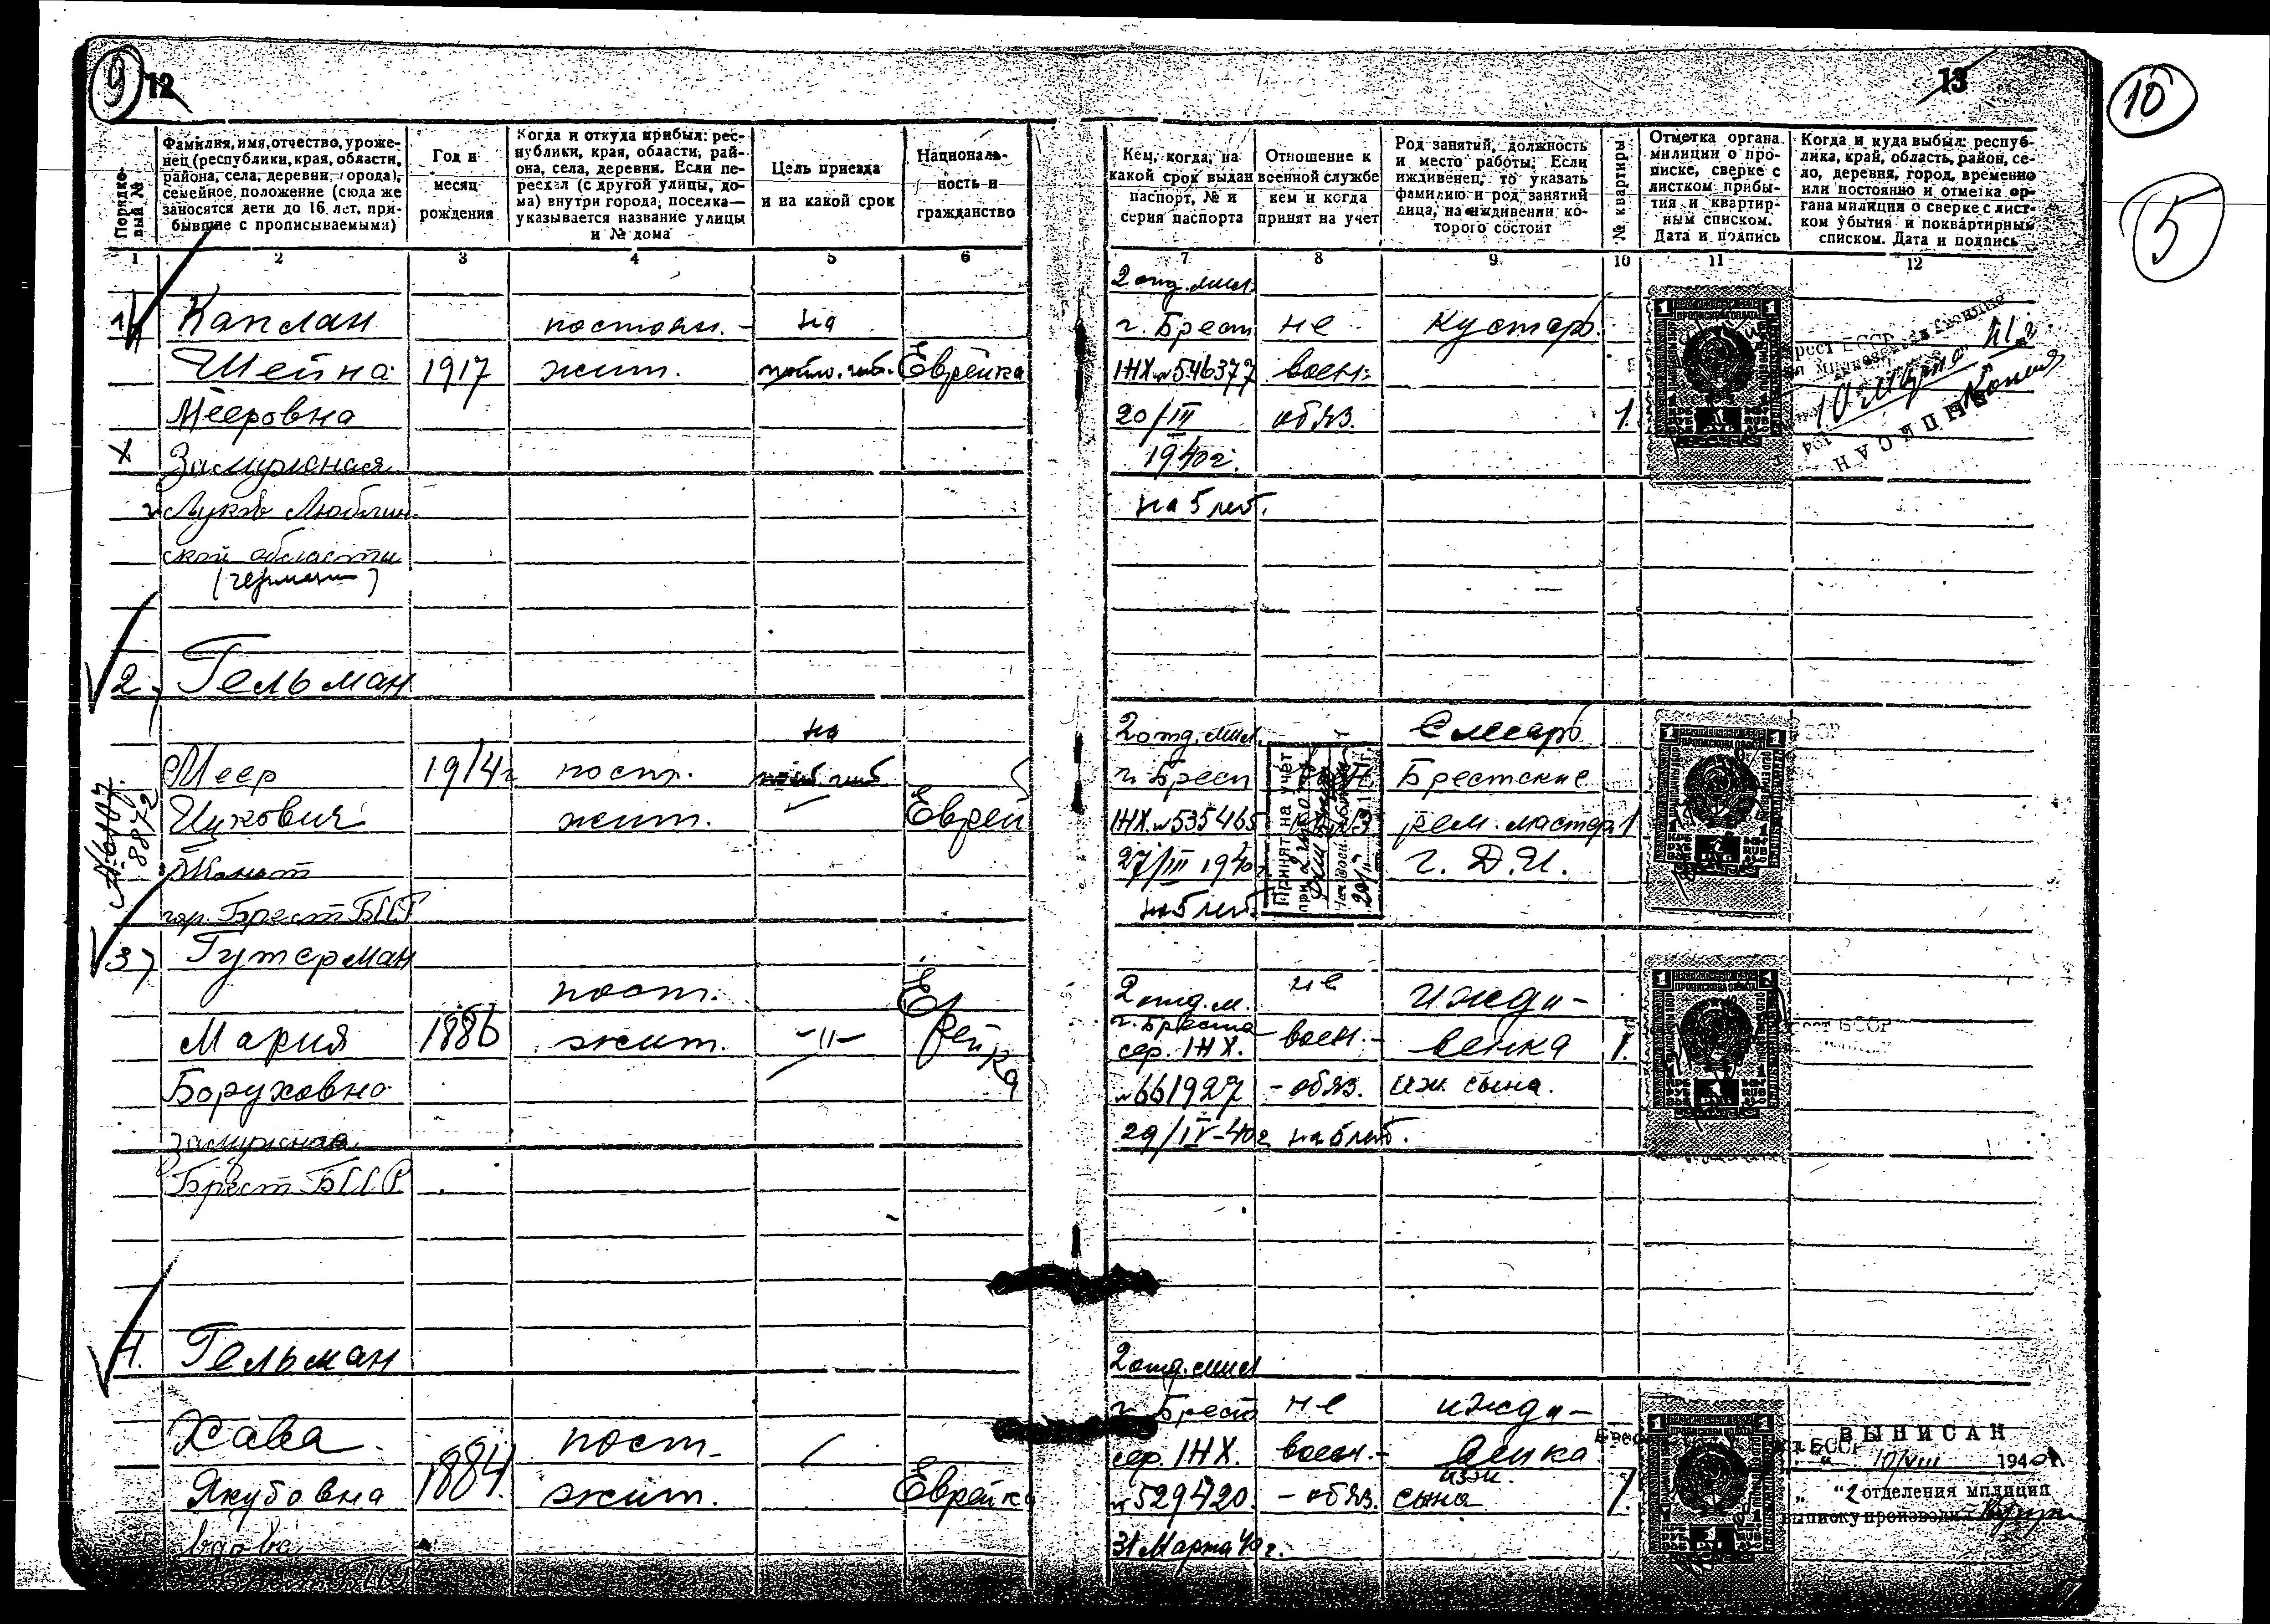 9 12
13
10
5
Порядковый №
Фамилия, имя, отчество, уроже-
нец (республики, края, области,
района, села, деревни, города),
семейное положение (сюда же
заносятся дети до 16 лет, при-
бывшие с прописываемыми)
Год и
месяц
рождения
Когда и откуда прибыл: рес-
публики, края, области, рай-
она, села, деревни. Если пе-
реехал (с другой улицы, до-
ма) внутри города, поселка—
указывается название улицы
и № дома
Цель приезда
и на какой срок
Националь-
ность и
гражданство
Кем, когда, на
какой срок выдан
паспорт, № и
серия паспорта
Отношение к
военной службе
кем и когда
принят на учет
Род занятий, должность
и место работы. Если
иждивенец, то указать
фамилию и род занятий
лица, на иждивении ко-
торого состоит
№ квартиры
Отметка органа
милиции о про-
писке, сверке с
листком прибы-
тия и квартир-
ным списком.
Дата и подпись
Когда и куда выбыл: респуб-
лика, край, область, район, се-
ло, деревня, город, временно
или постоянно и отметка ор-
гана милиции о сверке с лист-
ком убытия и поквартирным
списком. Дата и подпись
1 2 3 4 5 6 7 8 9 10 11 12
2 отд. мил.
1) Каплан постоян. - на г. Брест не кустарь.
Шейна 1917 жит. Еврейка IНХ № 546377 воен-
Мееровна 20/III обяз. 1.
Замужная 1940 г.
г. Луков Люблин на 5 лет.
ской области
ВЫПИСАН
2) Гельман
на 2 отд. мил. Слесарь
Меер 1914 г пост. г. Брест Брестские
Ицкович жит. Еврей IНХ № 535465 рем. мастер 1
27/III 1940 г. Д.И.
гор. Брест БССР на 5 лет.
Принят на учет
№ 6107.
8872
3) Гутерман
пост. Ев 2 отд. м. не ижди-
Мария 1886 жит. -"- рейка г. Бреста сер. IНХ. воен.- венка 1.
Боруховна № 661927 - обяз. иж. сына.
замужная 29/IV-40 г на 5 лет.
Брест БССР
4. Гельман 2 отд. мил
г. Брест не ижди-
Хава пост- сер. IНХ. воен.- венка
Якубовна 1884 жит. Еврейка № 529420. - обяз. сына 1.
вдова 31 Марта 40 г.
ВЫПИСАН
10/VIII 1940
"2 отделения милиции
выписку производил